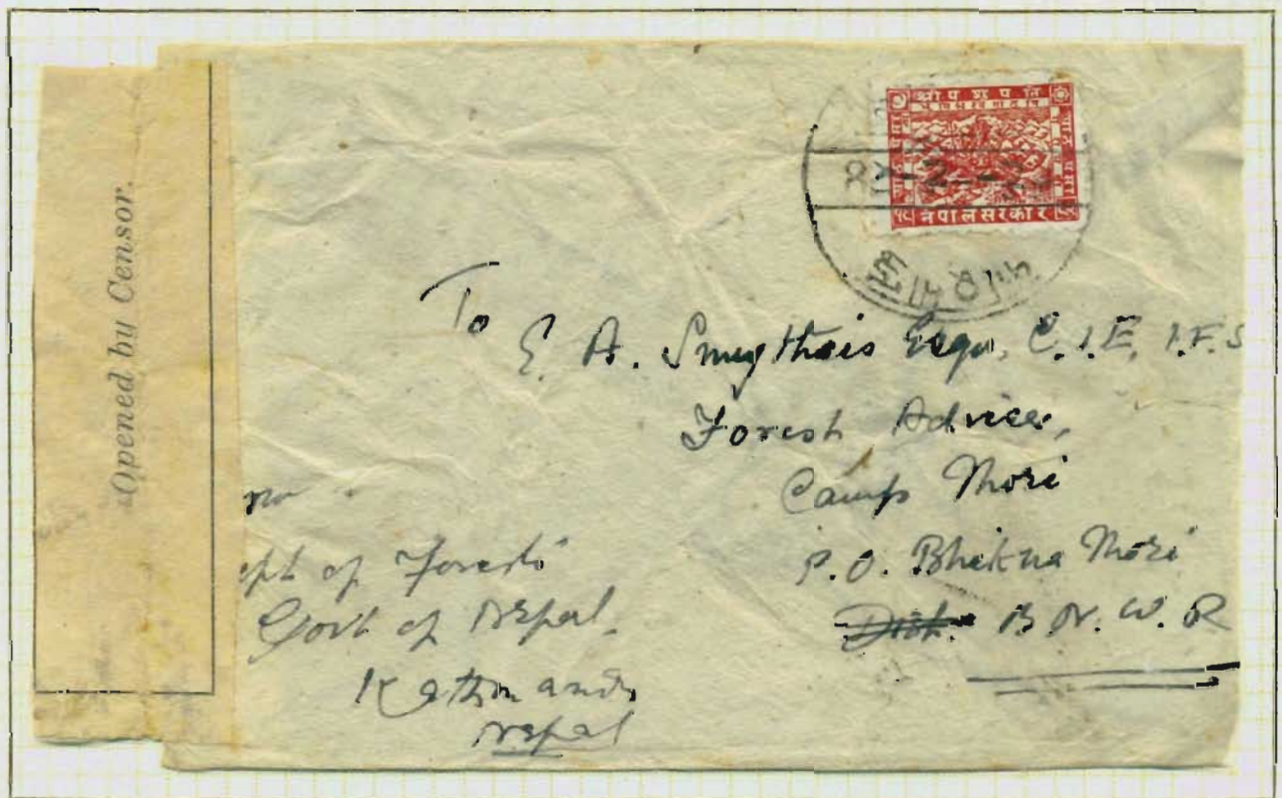 Opened by Censor.
श्री प शु प ति
नेपाल सरकार
To E. A. Smythies Esqr, C.I.E, I.F.S
Forest Adviser,
Camp Mori
P.O. Bhikna Mori
Dist. B. N. W. R
ept of Forests
Govt of Nepal.
Kathmandu
Nepal